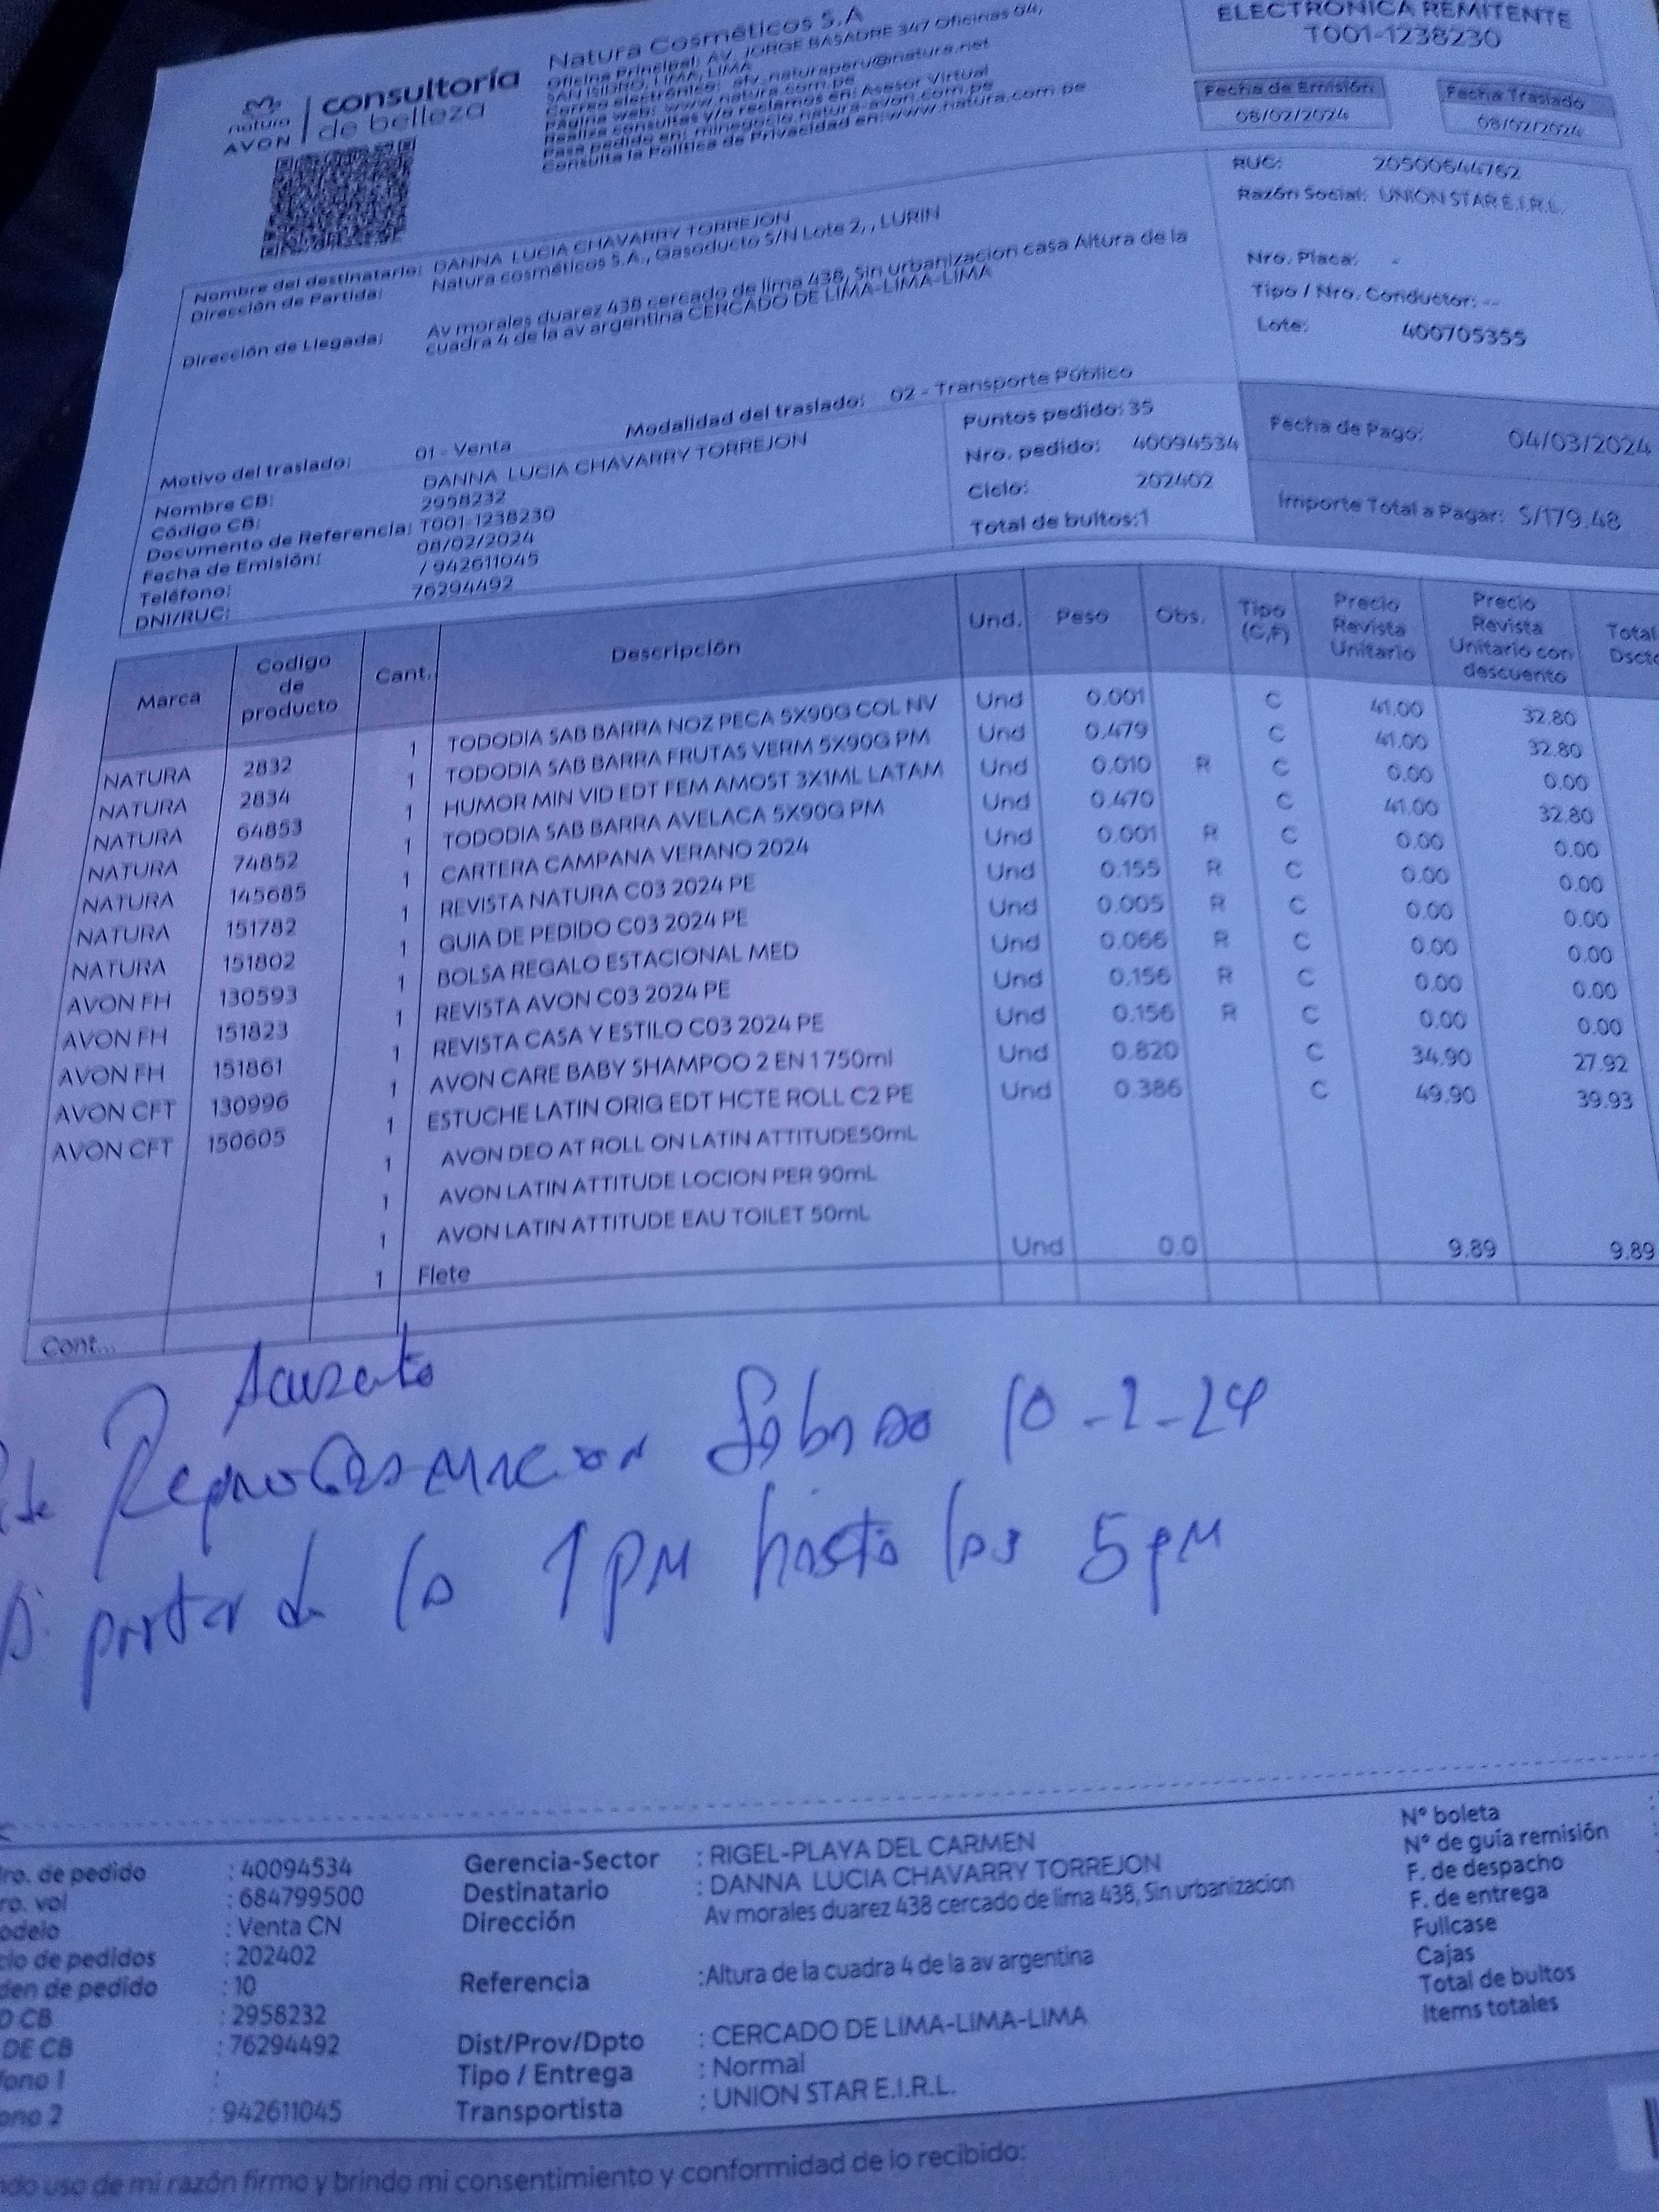 natura
AVON
consultoría
de belleza
Natura Cosméticos S.A
Oficina Principal: AV. JORGE BASADRE 347 Oficinas 04,
SAN ISIDRO, LIMA, LIMA
Página web: www.natura.com.pe
Realiza consultas y/o reclamos en: Asesor Virtual
Pasa pedido en: minegocio.natura-avon.com.pe
Consulta la Política de Privacidad en: www.natura.com.pe
ELECTRÓNICA REMITENTE
T001-1238230
Fecha de Emisión
08/02/2024
Fecha Traslado
08/02/2024
Nombre del destinatario: DANNA LUCIA CHAVARRY TORREJON
Dirección de Partida: Natura cosméticos S.A., Gasoducto S/N Lote 2, , LURIN
Dirección de Llegada: Av morales duarez 438 cercado de lima 438, Sin urbanizacion casa Altura de la
cuadra 4 de la av argentina CERCADO DE LIMA-LIMA-LIMA
RUC: 20500644762
Razón Social: UNION STAR E.I.R.L.
Nro. Placa: -
Tipo / Nro. Conductor: --
Lote: 400705355
Motivo del traslado: 01 - Venta Modalidad del traslado: 02 - Transporte Público
Nombre CB: DANNA LUCIA CHAVARRY TORREJON
Código CB: 2958232
Documento de Referencia: T001-1238230
Fecha de Emisión: 08/02/2024
Teléfono: / 942611045
DNI/RUC: 76294492
Puntos pedido: 35
Nro. pedido: 40094534
Ciclo: 202402
Total de bultos:1
Fecha de Pago: 04/03/2024
Importe Total a Pagar: S/179.48
Marca Codigo de producto Cant. Descripción Und. Peso Obs. Tipo (C,F) Precio Revista Unitario Precio Revista Unitario con descuento Total
NATURA 2832 1 TODODIA SAB BARRA NOZ PECA 5X90G COL NV Und 0.001 C 41.00 32.80
NATURA 2834 1 TODODIA SAB BARRA FRUTAS VERM 5X90G PM Und 0.479 C 41.00 32.80
NATURA 64853 1 HUMOR MIN VID EDT FEM AMOST 3X1ML LATAM Und 0.010 R C 0.00 0.00
NATURA 74852 1 TODODIA SAB BARRA AVELACA 5X90G PM Und 0.470 C 41.00 32.80
NATURA 145685 1 CARTERA CAMPANA VERANO 2024 Und 0.001 R C 0.00 0.00
NATURA 151782 1 REVISTA NATURA C03 2024 PE Und 0.155 R C 0.00 0.00
NATURA 151802 1 GUIA DE PEDIDO C03 2024 PE Und 0.005 R C 0.00 0.00
AVON FH 130593 1 BOLSA REGALO ESTACIONAL MED Und 0.066 R C 0.00 0.00
AVON FH 151823 1 REVISTA AVON C03 2024 PE Und 0.156 R C 0.00 0.00
AVON FH 151861 1 REVISTA CASA Y ESTILO C03 2024 PE Und 0.156 R C 0.00 0.00
AVON CFT 130996 1 AVON CARE BABY SHAMPOO 2 EN 1 750ml Und 0.820 C 34.90 27.92
AVON CFT 150605 1 ESTUCHE LATIN ORIG EDT HCTE ROLL C2 PE Und 0.386 C 49.90 39.93
1 AVON DEO AT ROLL ON LATIN ATTITUDE50mL
1 AVON LATIN ATTITUDE LOCION PER 90mL
1 AVON LATIN ATTITUDE EAU TOILET 50mL
1 Flete Und 0.0 9.89 9.89
Cont...
10-2-24
partir de la 1 PM hasta las 5 pM
ro. de pedido : 40094534
ro. vol : 684799500
odelo : Venta CN
clo de pedidos : 202402
den de pedido : 10
D CB : 2958232
DE CB : 76294492
fono 1 :
ono 2 : 942611045
Gerencia-Sector : RIGEL-PLAYA DEL CARMEN
Destinatario : DANNA LUCIA CHAVARRY TORREJON
Dirección Av morales duarez 438 cercado de lima 438, Sin urbanizacion
Referencia :Altura de la cuadra 4 de la av argentina
Dist/Prov/Dpto : CERCADO DE LIMA-LIMA-LIMA
Tipo / Entrega : Normal
Transportista : UNION STAR E.I.R.L.
N° boleta
N° de guía remisión
F. de despacho
F. de entrega
Fullcase
Cajas
Total de bultos
Items totales
ndo uso de mi razón firmo y brindo mi consentimiento y conformidad de lo recibido: